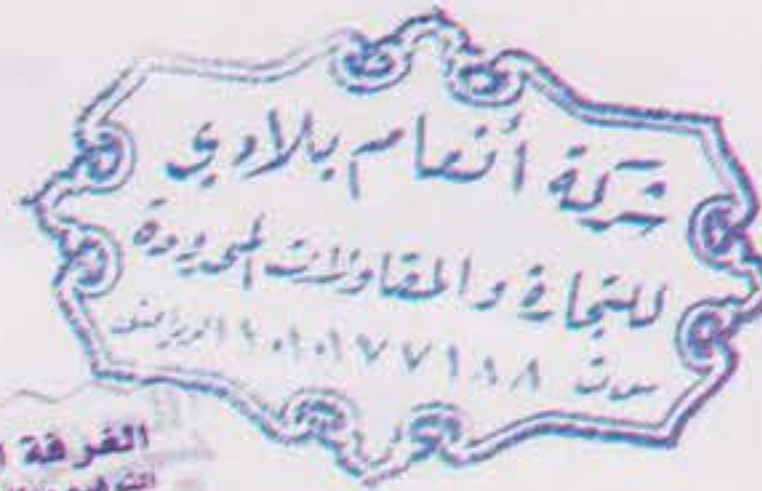 شركة أنعام بلادي
للتجارة والمقاولات المحدودة
س ت ١٠١٠١٧٧١٨٨ الرياض
الغرفة